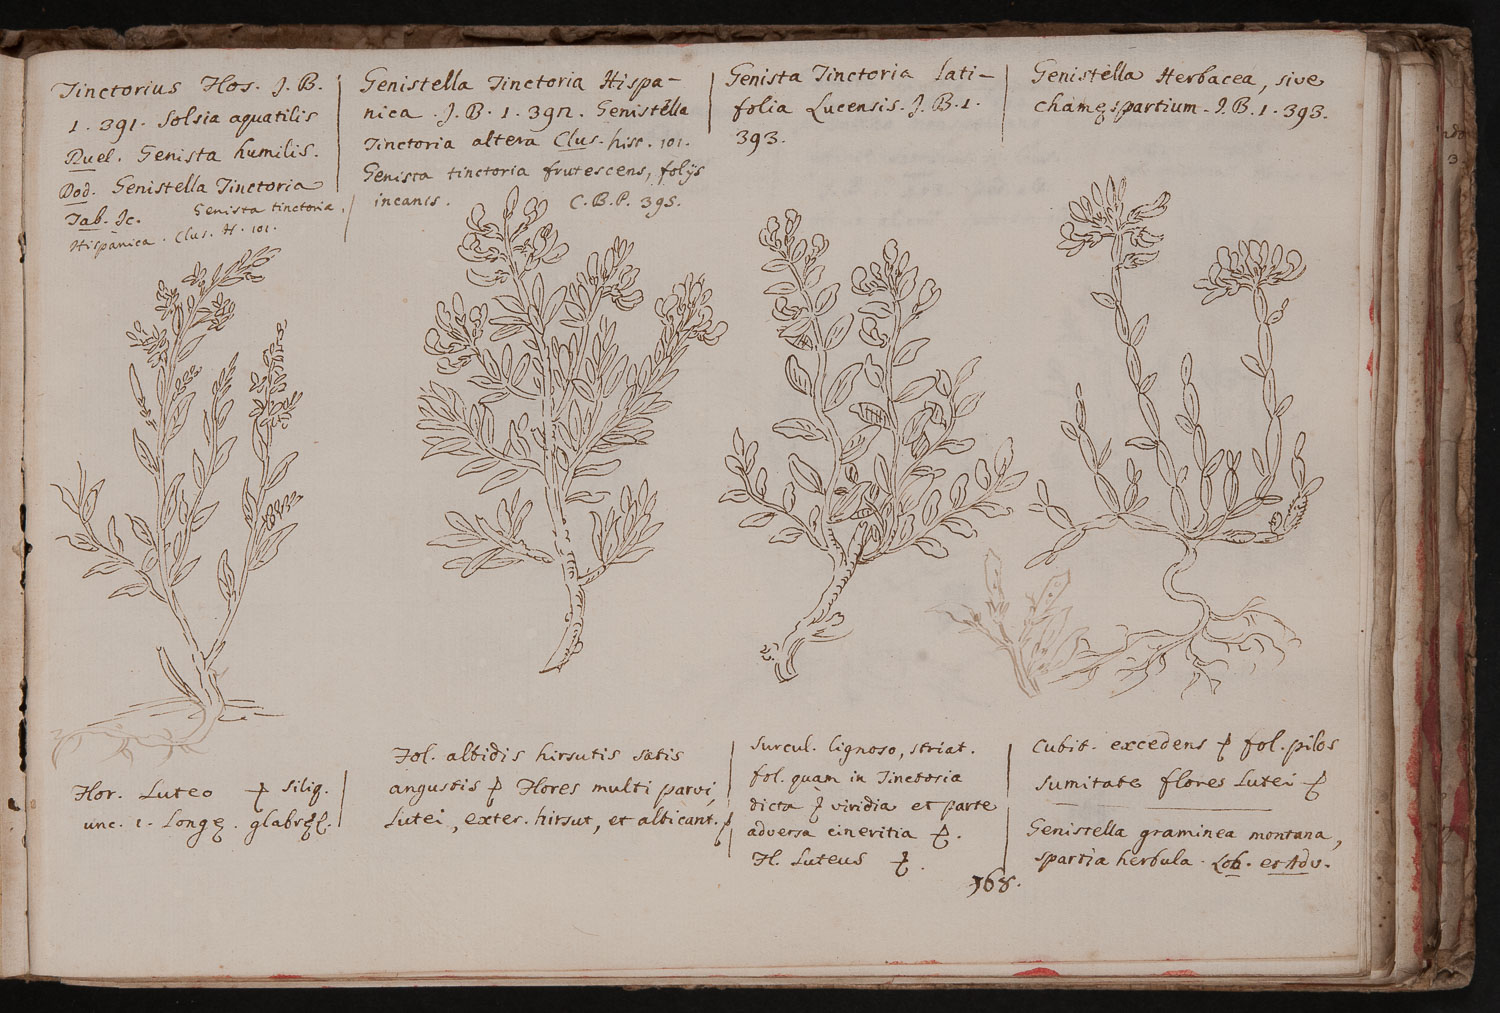 Tinctorius Flos. J. B.
1. 391. Solsia aquatilis
Ruel. Genista humilis.
Dod. Genistella Tinctoria
Tab. Ic. Genista tinctoria,
Hispanica. Clus. H. 101.
Genistella Tinctoria Hispa-
nica. J. B. 1. 392. Genistella
Tinctoria altera Clus. hisp. 101.
Genista tinctoria frutescens, folijs
incanis. C. B. P. 395.
Genista Tinctoria lati-
folia Lucensis. J. B. 1.
393.
Genistella Herbacea, sive
chamęspartium. J. B. 1. 393.
Flor. Luteo siliq.
unc. 1. Longę. glabrę.
Fol. albidis hirsutis satis
angustis Flores multi parvi,
Lutei, exter. hirsut, et albicant.
Surcul. lignoso, striat.
fol. quam in Tinctoria
dicta viridia et parte
adversa cineritia
Fl. Luteus
Cubit. excedens fol. pilos
sumitate flores Lutei
Genistella graminea montana,
spartia herbula. Lob. et Adv.
168.